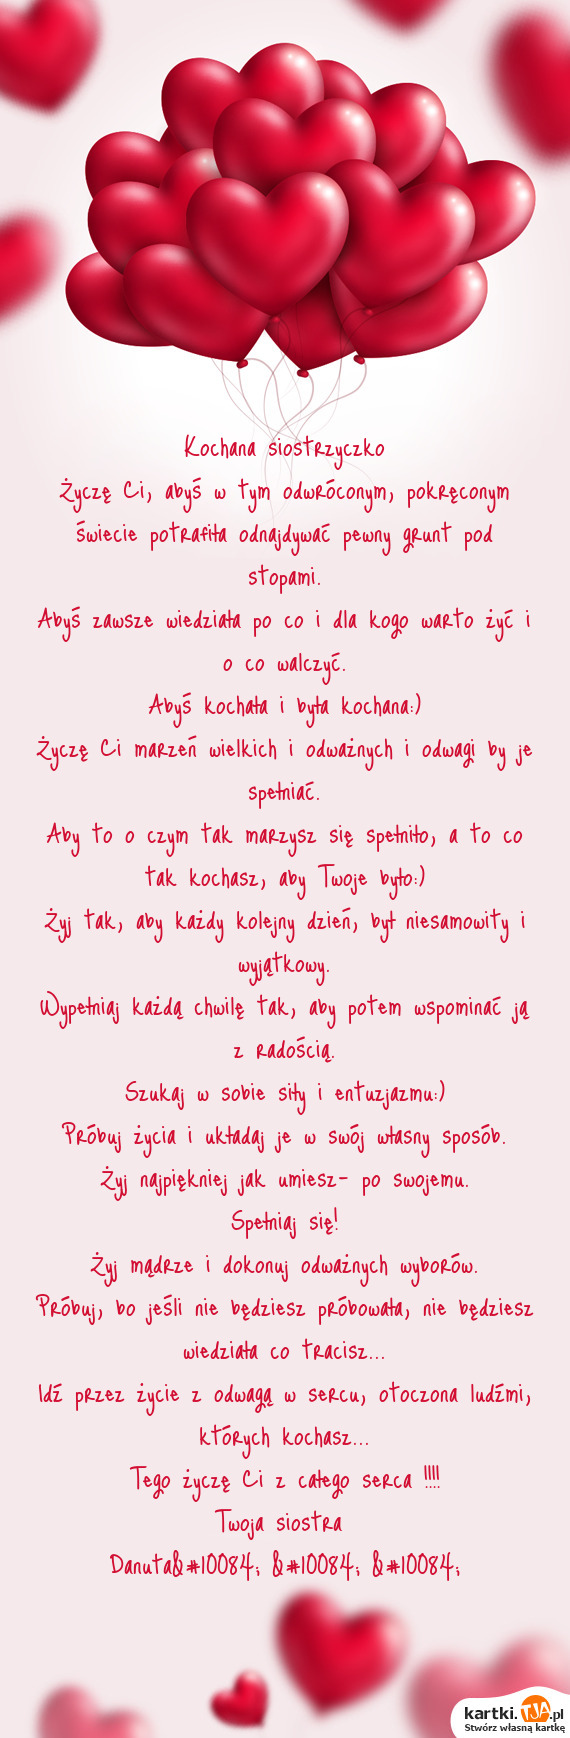 Kochana siostrzyczko
Życzę Ci, abyś w tym odwróconym, pokręconym
świecie potrafiła odnajdywać pewny grunt pod
stopami.
Abyś zawsze wiedziała po co i dla kogo warto żyć i
o co walczyć.
Abyś kochała i była kochana:)
Życzę Ci marzeń wielkich i odważnych i odwagi by je
spełniać.
Aby to o czym tak marzysz się spełniło, a to co
tak kochasz, aby Twoje było:)
Żyj tak, aby każdy kolejny dzień, był niesamowity i
wyjątkowy.
Wypełniaj każdą chwilę tak, aby potem wspominać ją
z radością.
Szukaj w sobie siły i entuzjazmu:)
Próbuj życia i układaj je w swój własny sposób.
Żyj najpiękniej jak umiesz- po swojemu.
Spełniaj się!
Żyj mądrze i dokonuj odważnych wyborów.
Próbuj, bo jeśli nie będziesz próbowała, nie będziesz
wiedziała co tracisz...
Idź przez życie z odwagą w sercu, otoczona ludźmi,
których kochasz...
Tego życzę Ci z całego serca !!!!
Twoja siostra
Danuta&#10084; &#10084; &#10084;
kartki.TJA.pl
Stwórz własną kartkę